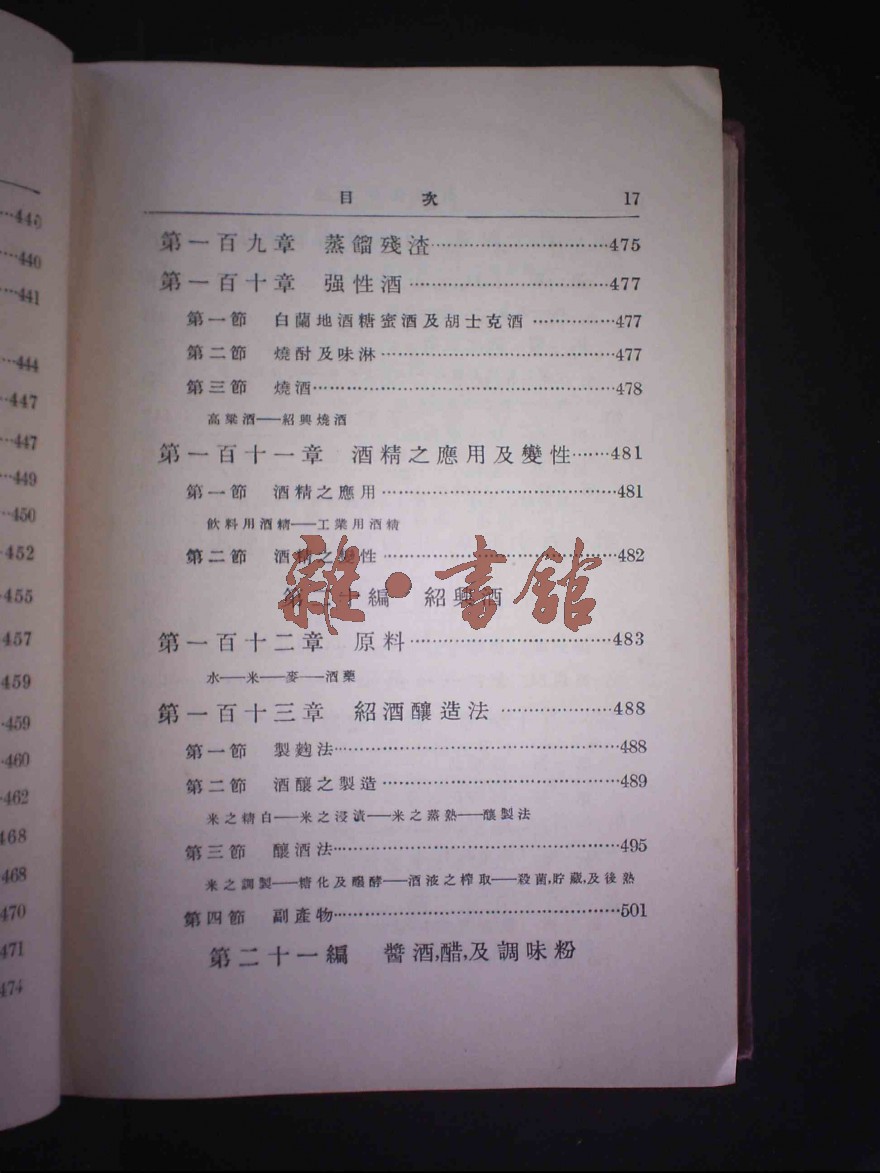 …446
…440
…441
…444
…447
…447
…449
…450
…452
…455
…457
…459
…459
…460
…462
…468
…468
…470
…471
…474
目次 17
第一百九章 蒸餾殘渣……………475
第一百十章 强性酒……………477
第一節 白蘭地酒糖蜜酒及胡士克酒……………477
第二節 燒酎及味淋……………477
第三節 燒酒……………478
高粱酒——紹興燒酒
第一百十一章 酒精之應用及變性……481
第一節 酒精之應用……………481
飲料用酒精——工業用酒精
第二節 酒精之變性……………482
雜·書館
第二十編 紹興酒
第一百十二章 原料……………483
水——米——麥——酒藥
第一百十三章 紹酒釀造法……………488
第一節 製麴法……………488
第二節 酒釀之製造……………489
米之精白——米之浸漬——米之蒸熟——釀製法
第三節 釀酒法……………495
米之調製——糖化及醱酵——酒液之榨取——殺菌,貯藏,及後熟
第四節 副產物……………501
第二十一編 醬酒,醋,及調味粉